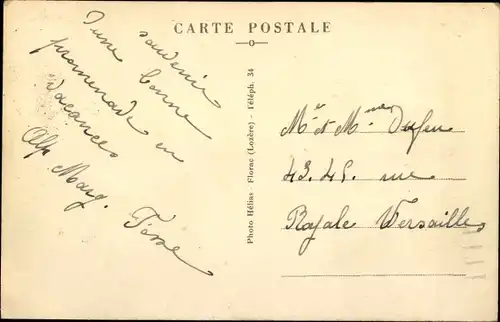 CARTE POSTALE
souvenir
d'une bonne
promenade en
vacances
Alp. Marg.
Photo Hélias Florac (Lozère) - Téléph. 34
Mr et Mme Dufeu
43.45. rue
Royale Versailles